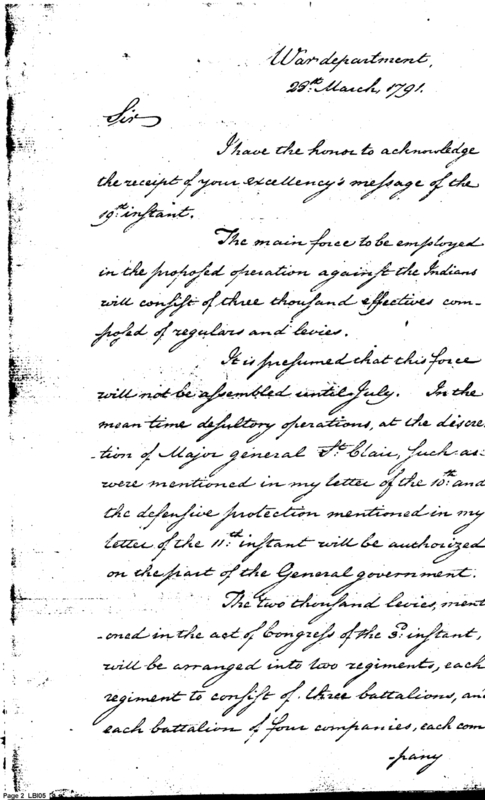 War department,
28th March, 1791.
Sir
I have the honor to acknowledge
the receipt of your excellency's message of the
19th instant.
The main force to be employed
in the proposed operation against the Indians
will consist of three thousand effectives com-
posed of regulars and levies.
It is presumed that this force
will not be assembled until July. In the
mean time desultory operations, at the discre
-tion of Major general St. Clair, such as
were mentioned in my letter of the 10th and
the defensive protection mentioned in my
letter of the 11th instant will be authorized
on the part of the General government.
The two thousand levies, ment
-oned in the act of Congress of the 3d instant,
will be arranged into two regiments, each
regiment to consist of three battalions, and
each battalion of four companies, each com
-pany
Page 2 LBI05